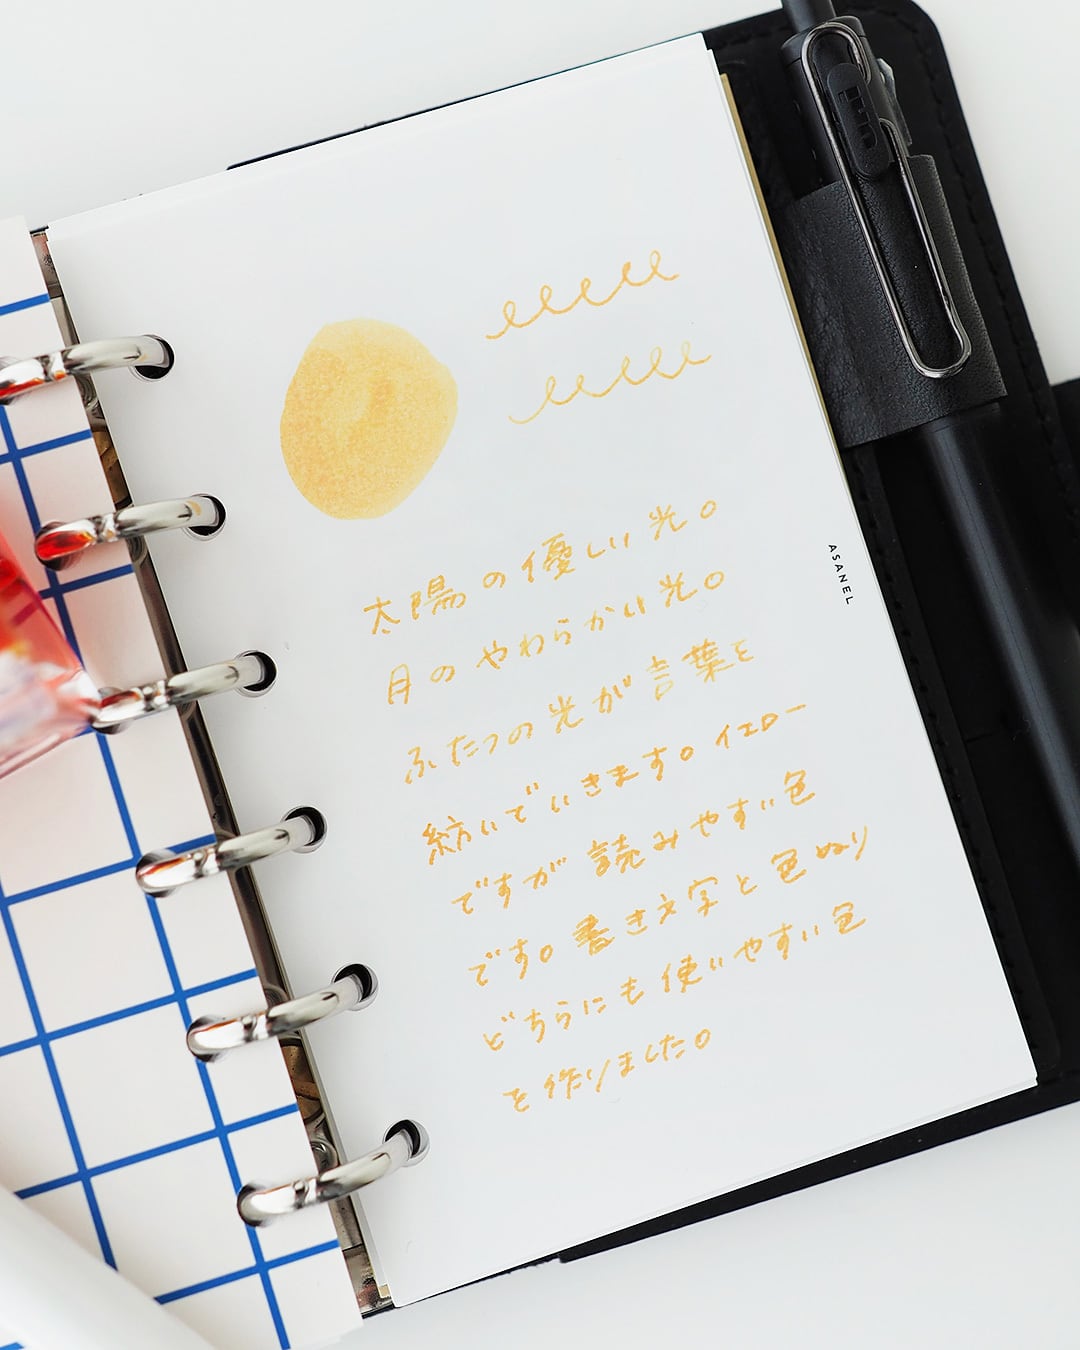 太陽の優しい光。
月のやわらかい光。
ふたつの光が言葉を
紡いでいきます。イエロー
ですが読みやすい色
です。書き文字と色ぬり
どちらにも使いやすい色
を作りました。
ASANEL